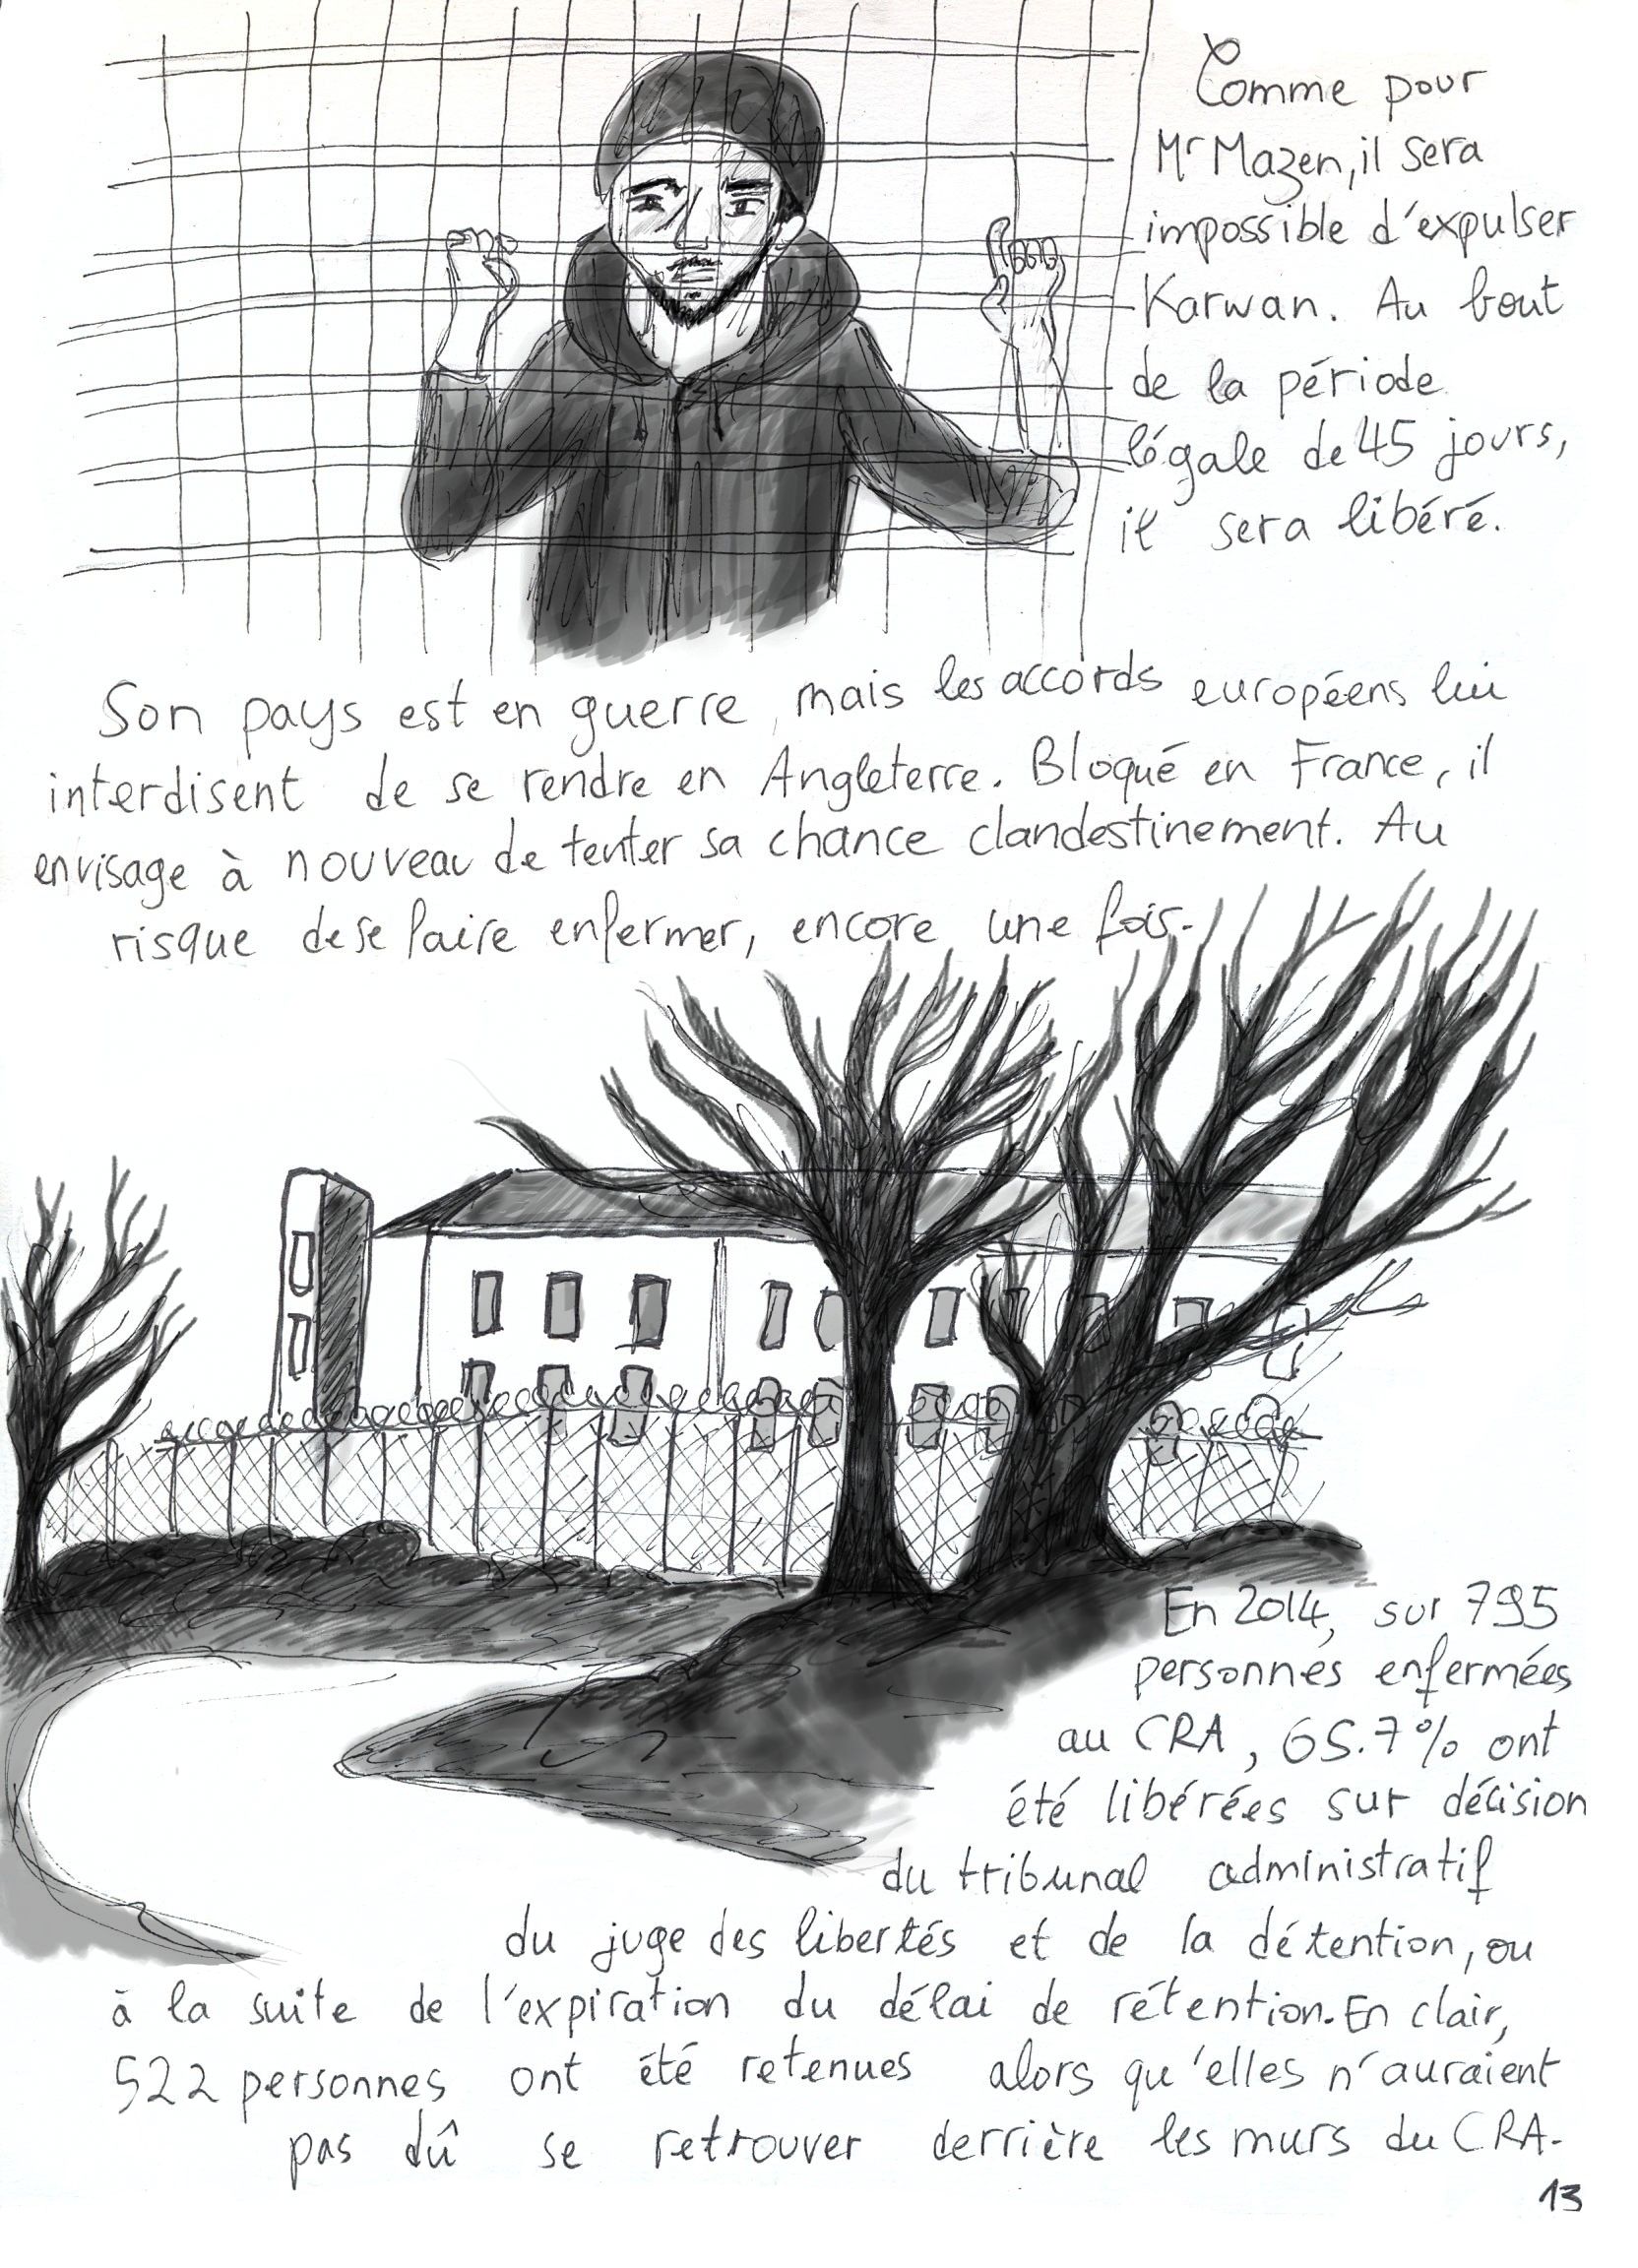 Comme pour
Mr Mazen, il sera
impossible d'expulser
Karwan. Au bout
de la période
légale de 45 jours,
il sera libéré.
Son pays est en guerre, mais les accords européens lui
interdisent de se rendre en Angleterre. Bloqué en France, il
envisage à nouveau de tenter sa chance clandestinement. Au
risque de se faire enfermer, encore une fois.
En 2014, sur 795
personnes enfermées
au CRA, 65.7% ont
été libérées sur décision
du tribunal administratif
du juge des libertés et de la détention, ou
à la suite de l'expiration du délai de rétention. En clair,
522 personnes ont été retenues alors qu'elles n'auraient
pas dû se retrouver derrière les murs du CRA.
13